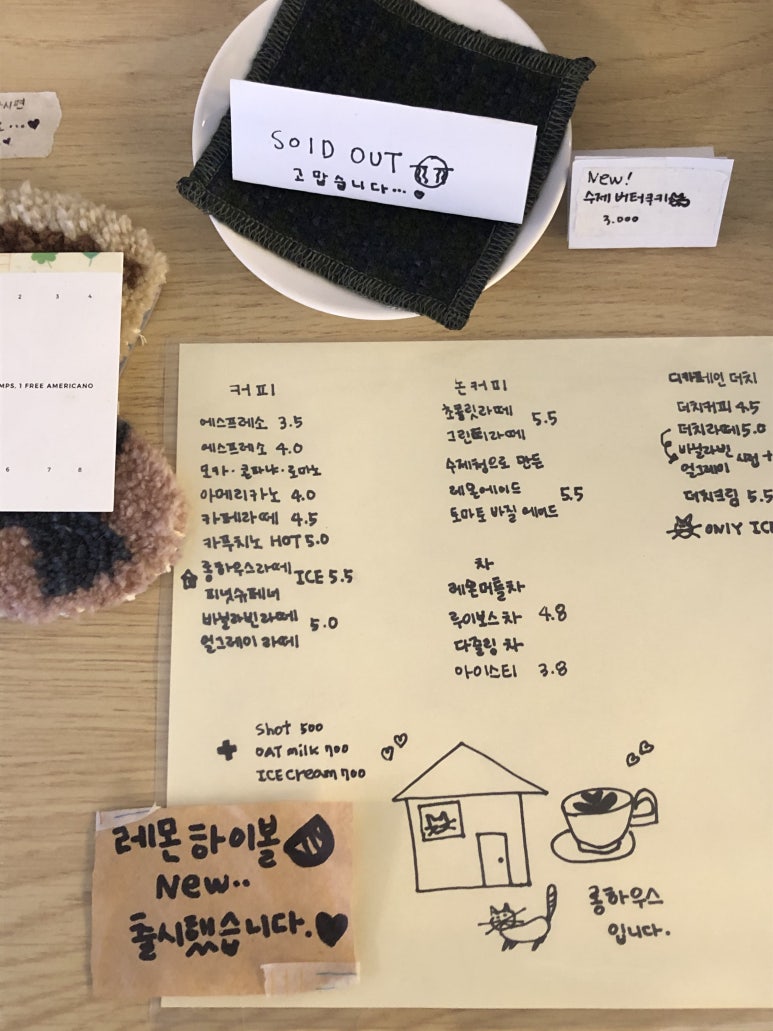 시면
SOlD OUT
고맙습니다...
New!
수제 버터쿠키
3.000
2 3 4
MPS, 1 FREE AMERICANO
6 7 8
커피
에스프레소 3.5
에스프레소 4.0
모카·콘파냐·로마노
아메리카노 4.0
카페라떼 4.5
카푸치노 HOT 5.0
롱하우스라떼 ICE 5.5
피넛슈페너
바닐라빈라떼 5.0
얼그레이 라떼
+ Shot 500
OAT milk 700
ICE cream 700
논커피
초콜릿라떼 5.5
그린티라떼
수제청으로 만든
레몬에이드 5.5
토마토 바질 에이드
차
레몬머틀차
루이보스차 4.8
다즐링 차
아이스티 3.8
디카페인 더치
더치커피 4.5
더치라떼 5.0
바닐라빈 시럽 +
얼그레이
더치크림 5.5
ONLY ICE
레몬 하이볼
New..
출시됐습니다.
롱하우스
입니다.